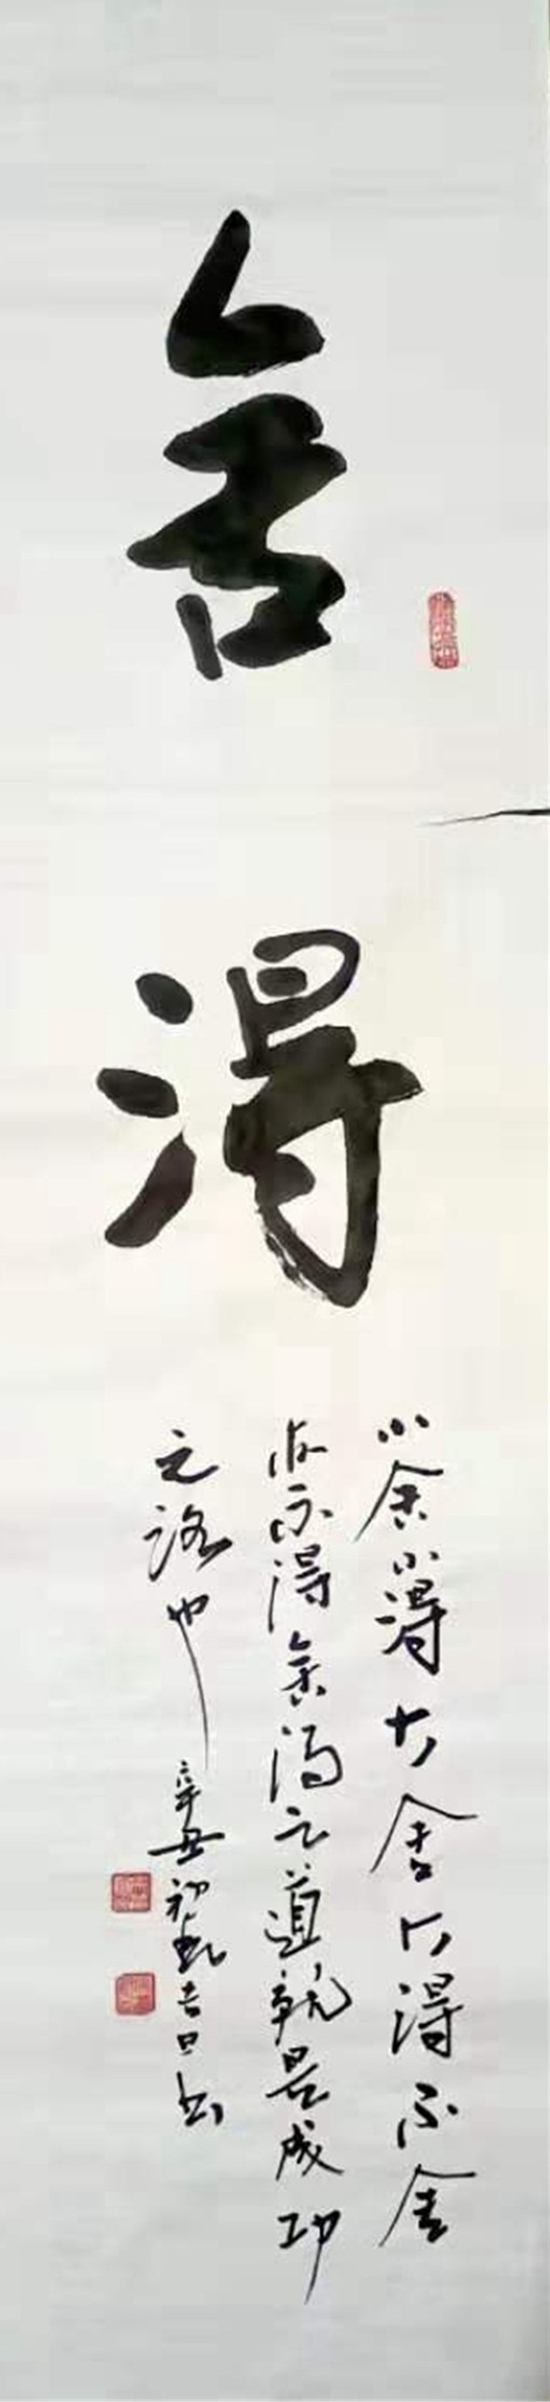 舍
得
小舍小得大舍大得不舍
不得舍得之道就是成功
之路也
辛丑初秋吉日书